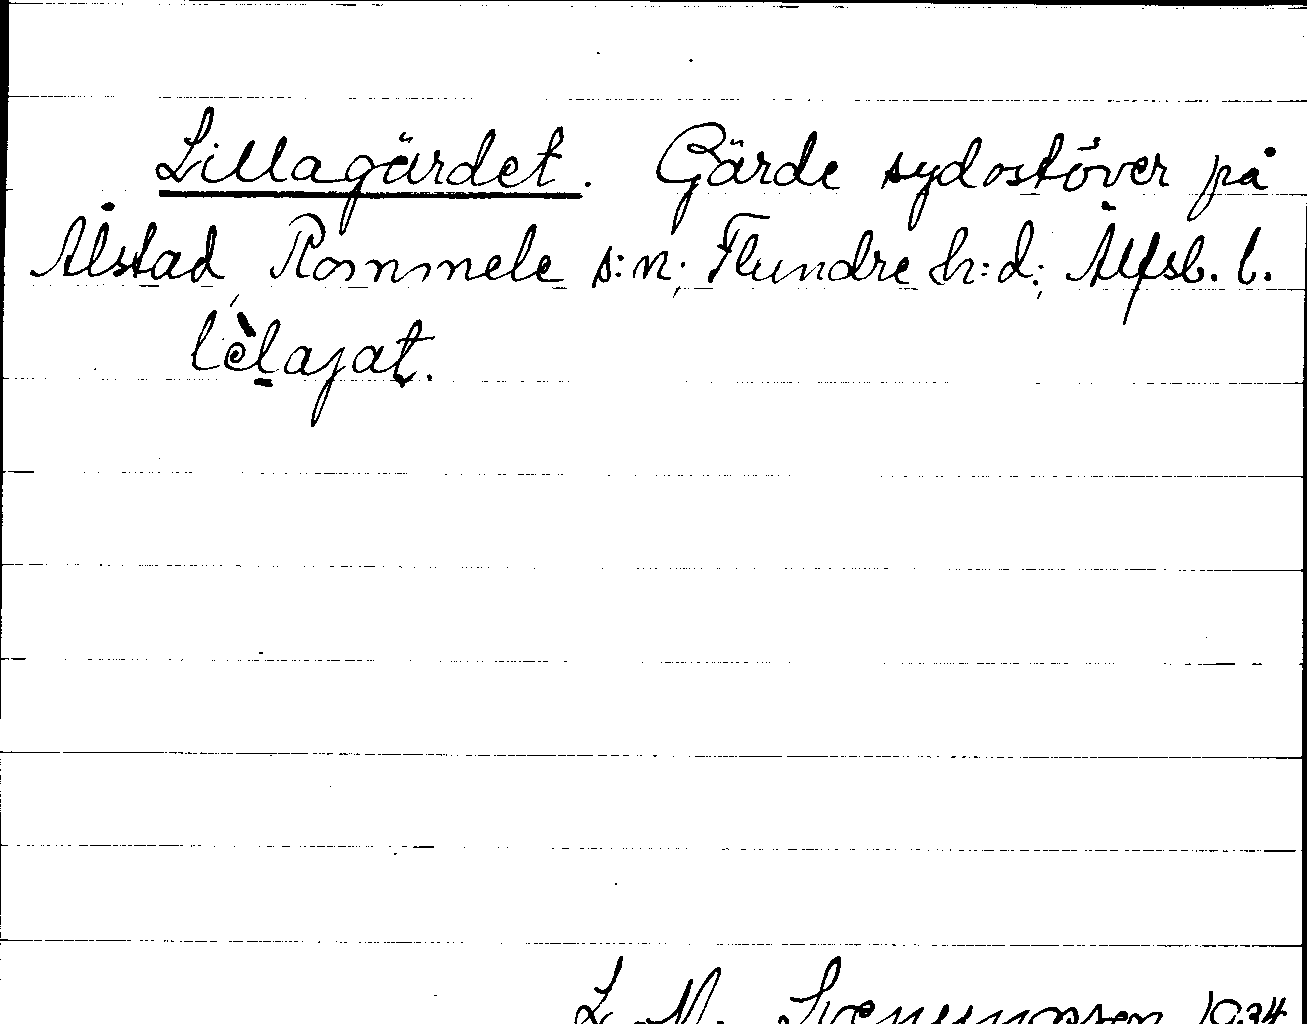 Lillagärdet. Gärde sydostöver på
Ålstad, Rommele s:n; Flundre h:d; Älfsb. l.
lèlajat.
L. M. Svenungsson 1934